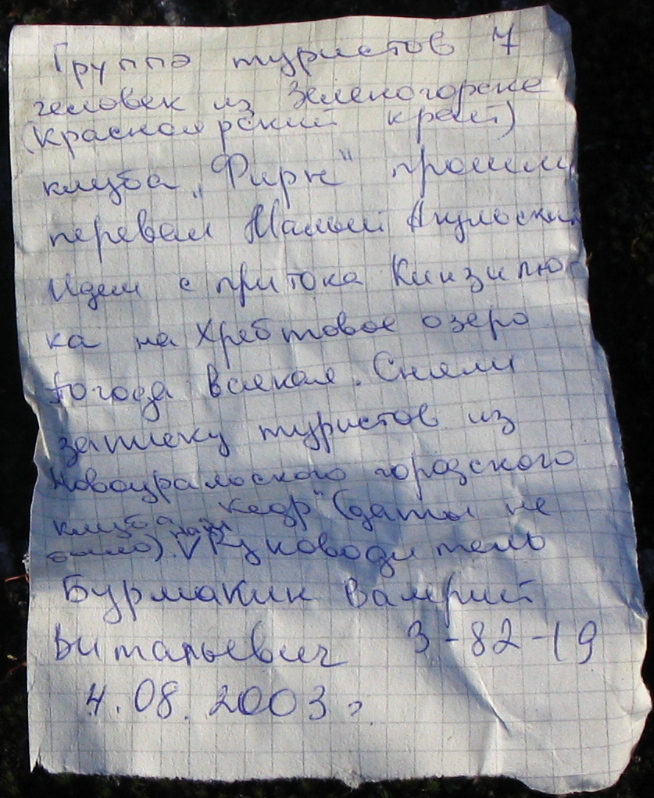 Группа туристов 7
человек из Зеленогорска
(Красноярский край)
клуба „Фирн" прошли
перевал Малый Агульский
Идем с притока Кинзилю
ка на Хребтовое озеро
Погода всякая. Сняли
записку туристов из
Новоуральского городского
клуба „Кедр" (даты не
было). Руководитель
Бурмакин Валерий
Витальевич 3-82-19
4.08.2003 г.